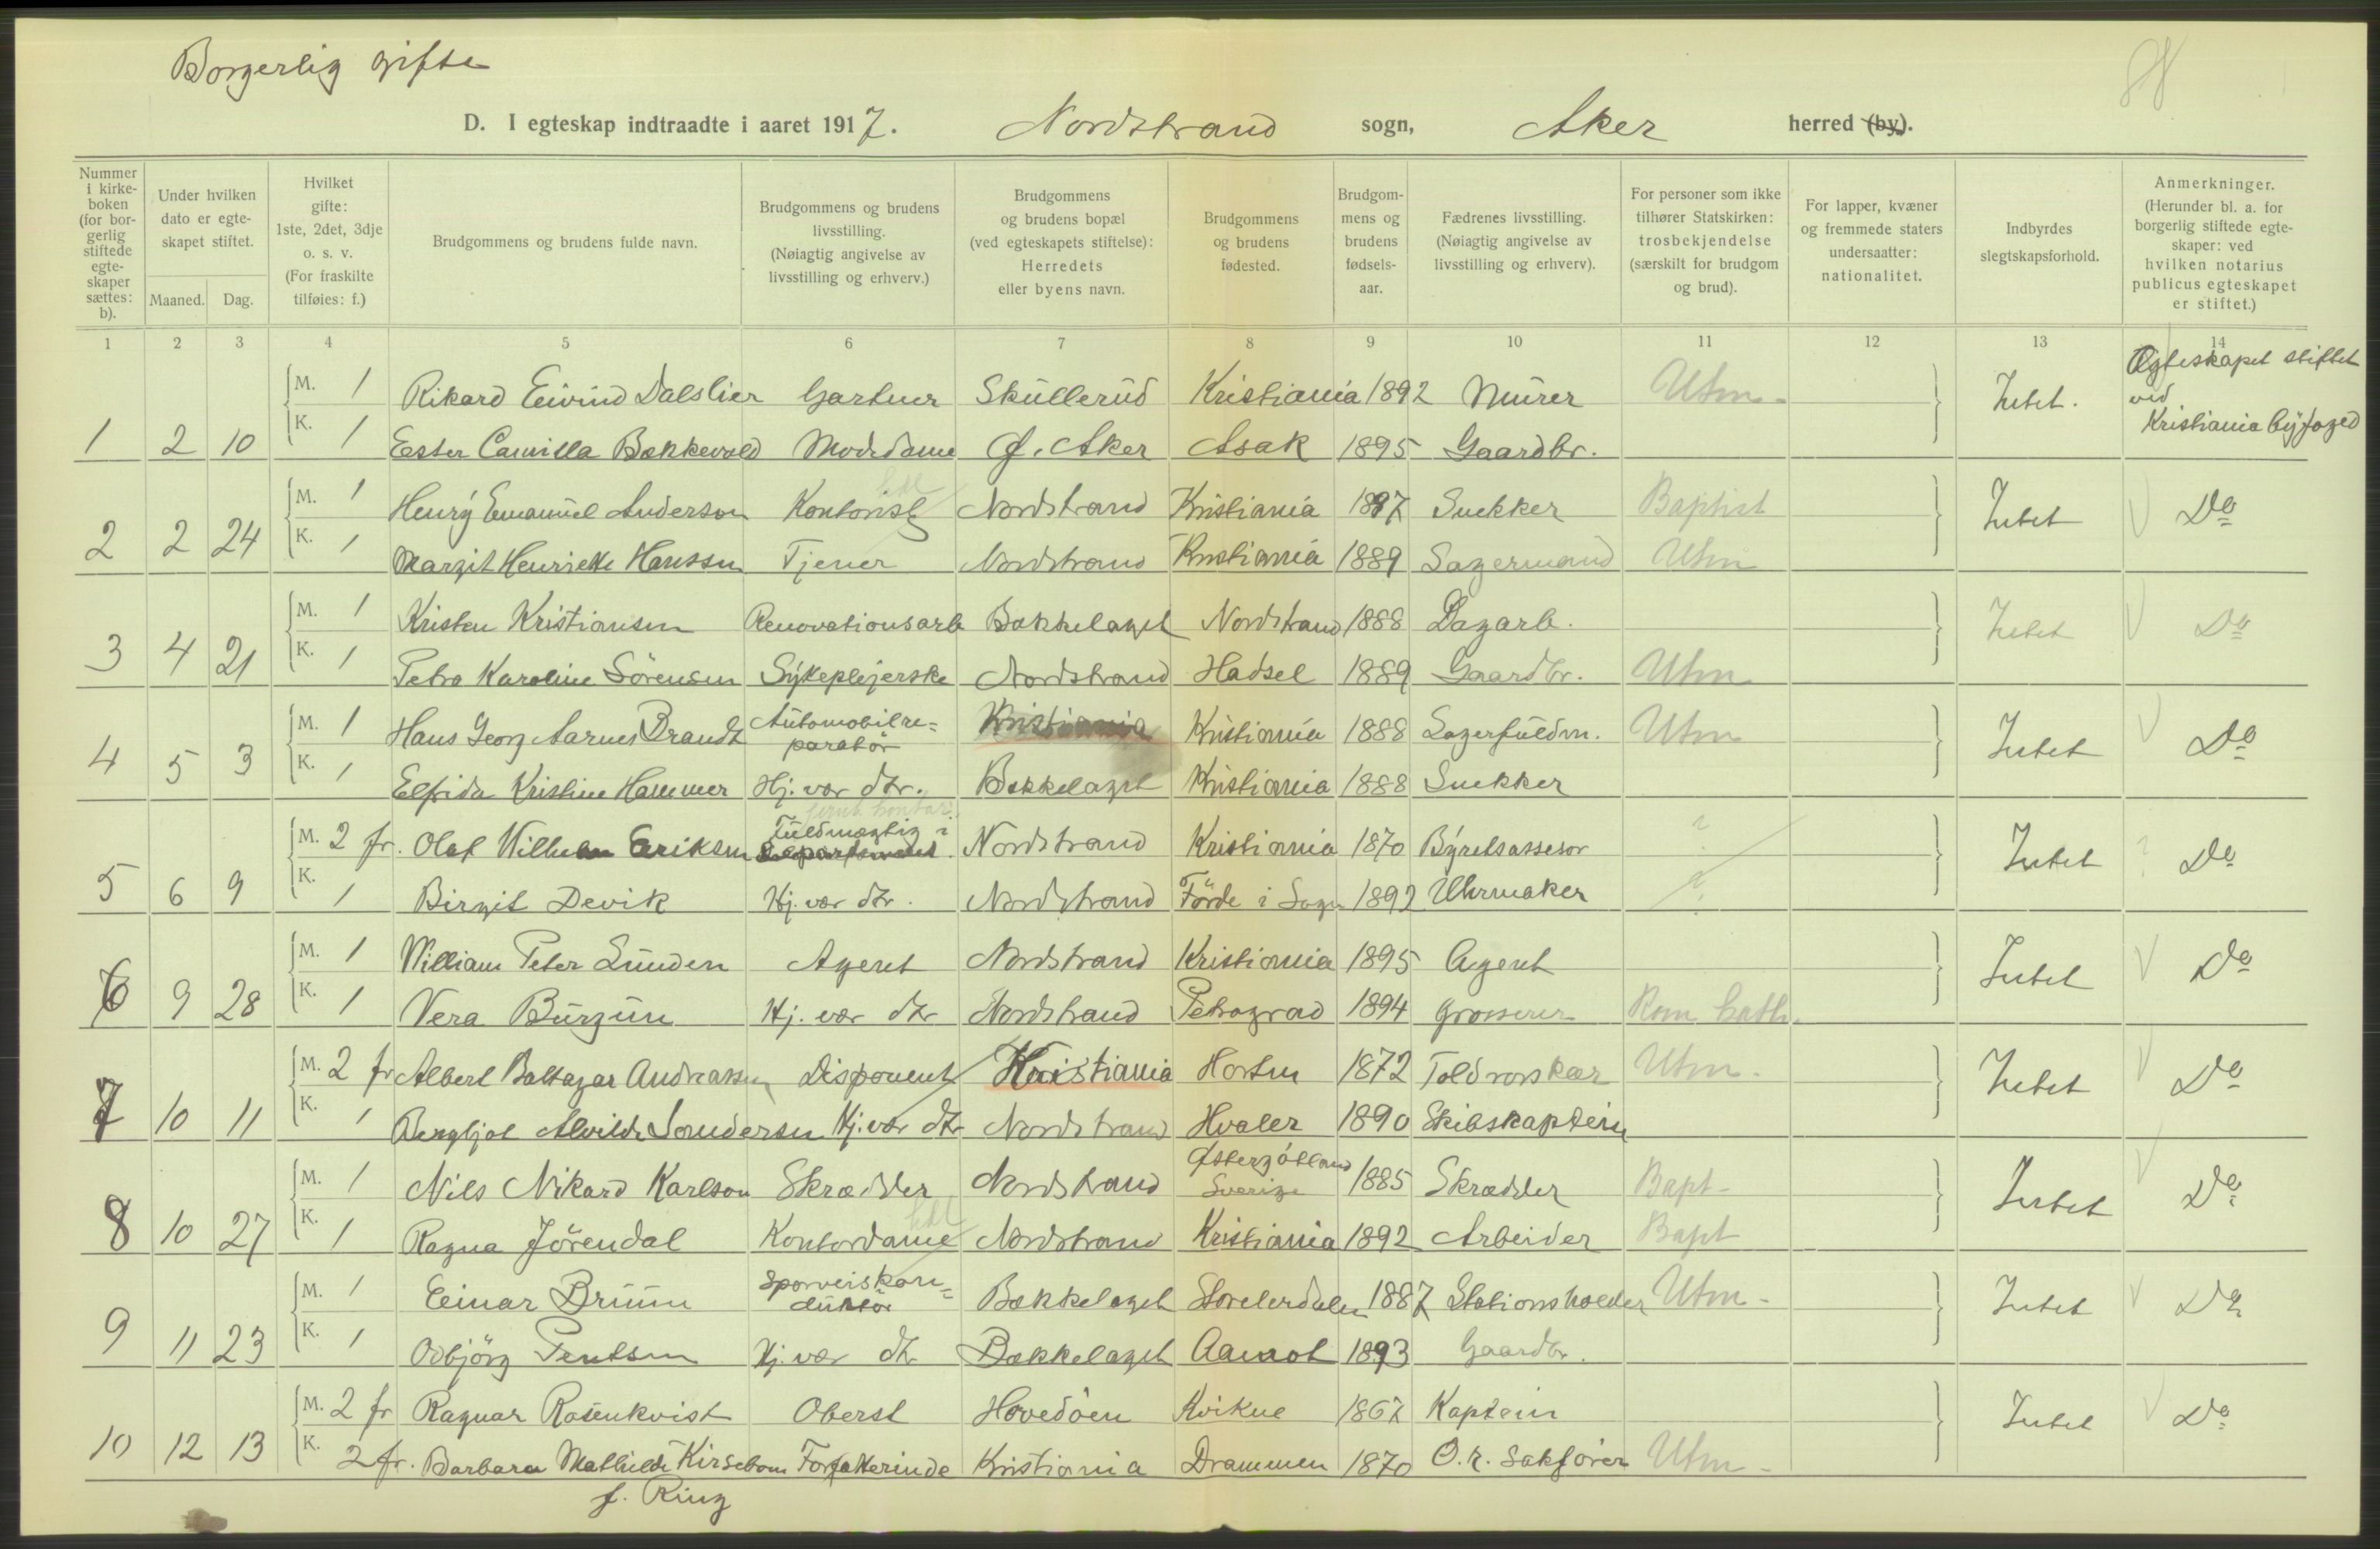 Borgerlig gifte
D. I egteskap indtraadte i aaret 1917. Nordstrand sogn, Aker herred (by).
Nummer i kirkeboken (for borgerlig stiftede egteskaper sættes: b).
Under hvilken dato er egteskapet stiftet.
Maaned. Dag.
Hvilket gifte: 1ste, 2det, 3dje o. s. v. (For fraskilte tilføies: f.)
Brudgommens og brudens fulde navn.
Brudgommens og brudens livsstilling. (Nøiagtig angivelse av livsstilling og erhverv.)
Brudgommens og brudens bopæl (ved egteskapets stiftelse): Herredets eller byens navn.
Brudgommens og brudens fødested.
Brudgommens og brudens fødselsaar.
Fædrenes livsstilling. (Nøiagtig angivelse av livsstilling og erhverv).
For personer som ikke tilhører Statskirken: trosbekjendelse (særskilt for brudgom og brud).
For lapper, kvæner og fremmede staters undersaatter: nationalitet.
Indbyrdes slegtskapsforhold.
Anmerkninger. (Herunder bl. a. for borgerlig stiftede egteskaper: ved hvilken notarius publicus egteskapet er stiftet.)
1 2 3 4 5 6 7 8 9 10 11 12 13 14
M. 1 Rikard Eivind Dalslier Gartner Skullerud Kristiania 1892 Murer Utm. Intet. Egteskapet stiftet ved Kristiania byfoged
1 2 10 K. 1 Ester Camilla Bækkevold Modedame Ø. Aker Asak 1895 Gaardbr.
M. 1 Henry Emanuel Anderson Kontorist Nordstrand Kristiania 1897 Snekker Baptist Intet Do
2 2 24 K. 1 Margit Henriette Hanssen Tjener Nordstrand Kristiania 1889 Lagermand Utm
M. 1 Kristen Kristiansen Renovationsarb Bækkelaget Nordstrand 1888 Dagarb. Intet Do
3 4 21 K. 1 Petra Karoline Sörensen Sykepleierske Nordstrand Hadsel 1889 Gaardbr. Utm
M. 1 Hans Georg Aarnes Brandt Automobilreparatör Kristiania Kristiania 1888 Lagerfuldm. Utm Intet Do
4 5 3 K. 1 Elfrida Kristine Hammer Hj. vær dtr. Bækkelaget Kristiania 1888 Snekker
M. 2 fr. Olaf Wilhelm Eriksen Fuldmægtig i Departementet Nordstrand Kristiania 1870 Byretsassesor ? Intet ? Do
5 6 9 K. 1 Birgit Devik Hj. vær dtr. Nordstrand Förde i Sogn 1892 Uhrmaker ?
M. 1 William Peter Lunden Agent Nordstrand Kristiania 1895 Agent Intet Do
6 9 28 K. 1 Vera Burgun Hj. vær dtr Nordstrand Petrograd 1894 Grosserer Rom kath.
M. 2 fr Albert Baltazar Andreassen Disponent Kristiania Horten 1872 Toldrorskar Utm. Intet Do
7 10 11 K. 1 Bergljot Alvilde Sondersen Hj. vær dtr Nordstrand Hvaler 1890 Skibskaptein
M. 1 Nils Nikard Karlson Skrædder Nordstrand Østergötland Sverige 1885 Skrædder Bapt Intet Do
8 10 27 K. 1 Ragna Jörendal Kontordame Nordstrand Kristiania 1892 Arbeider Bapt
M. 1 Einar Bruun Sporveiskonduktör Bækkelaget Storelerdalen 1887 Stationsholder Utm Intet Do
9 11 23 K. 1 Odbjörg Pentsen Hj. vær dtr Bækkelaget Aamot 1893 Gaardbr.
M. 2 fr Ragnar Rosenkvist Oberst Hovedöen Kvikne 1867 Kaptein Intet Do
10 12 13 K. 2 fr. Barbara Mathilde Kirsebom Forfatterinde Kristiania Drammen 1870 O.r. sakförer Utm
f. Ring